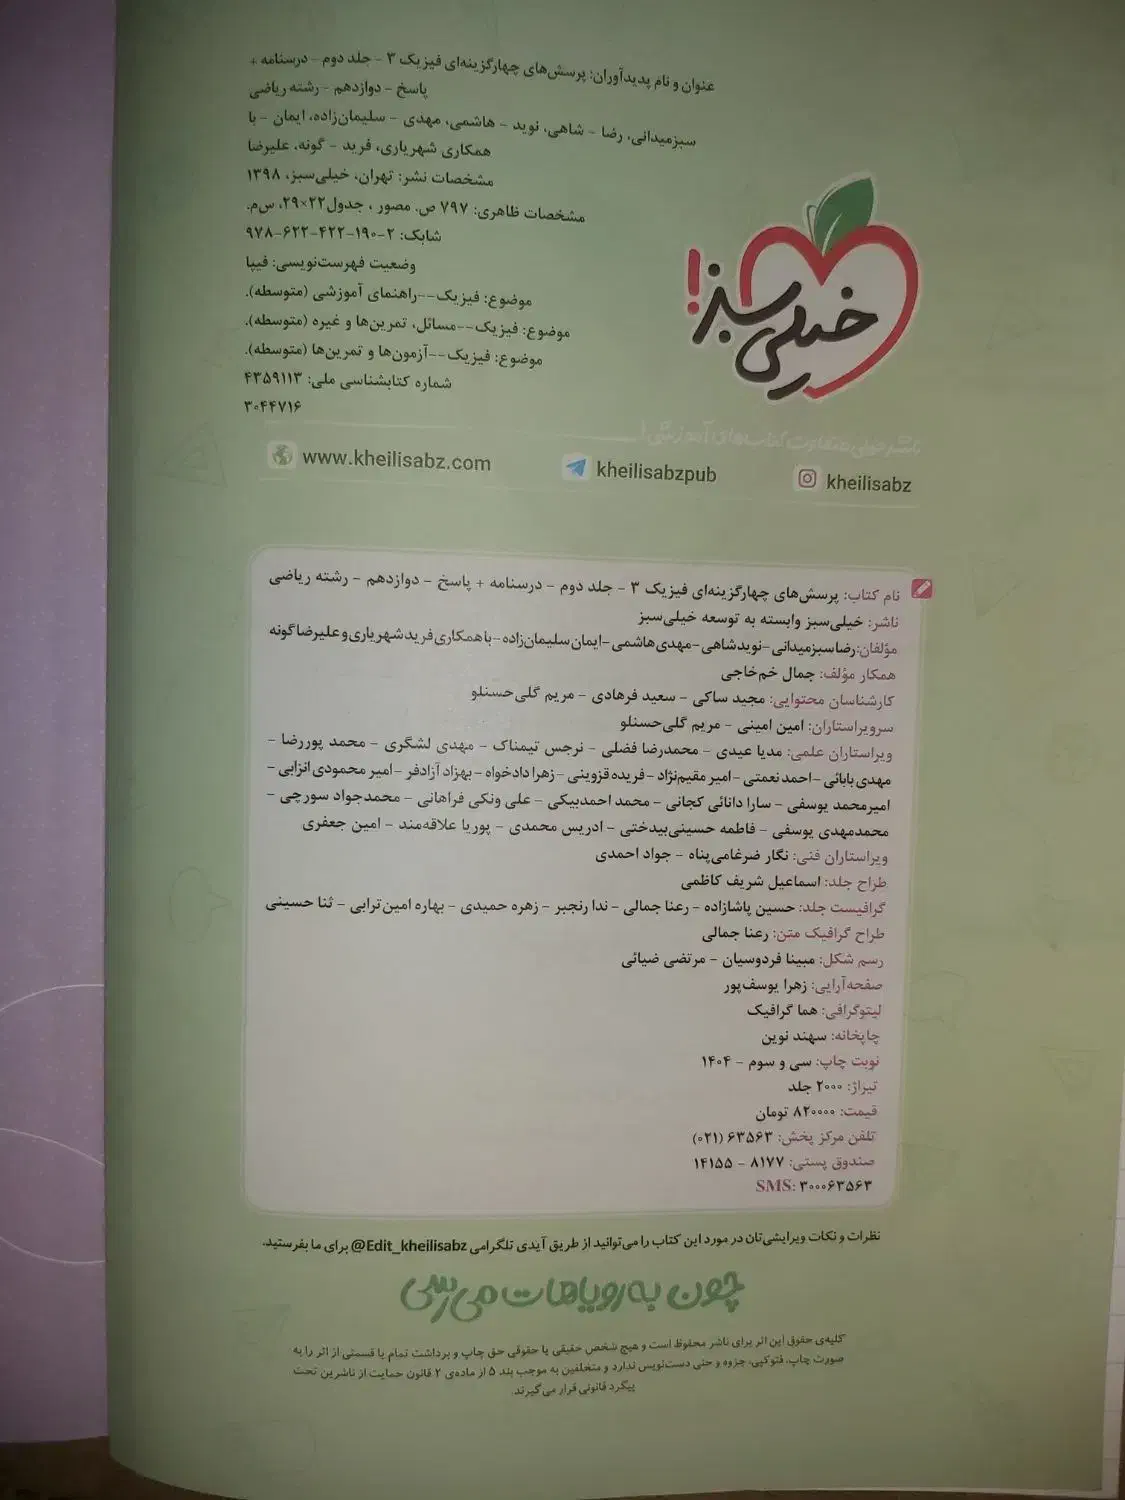 عنوان و نام پدیدآوران: پرسش‌های چهارگزینه‌ای فیزیک ۳ - جلد دوم - درسنامه +
پاسخ - دوازدهم - رشته ریاضی
سبزمیدانی، رضا - شاهی، نوید - هاشمی، مهدی - سلیمان‌زاده، ایمان - با
همکاری شهریاری، فرید - گونه، علیرضا
مشخصات نشر: تهران، خیلی‌سبز، ۱۳۹۸
مشخصات ظاهری: ۷۹۷ ص. مصور ، جدول۲۲×۲۹، س‌م.
شابک: ۲-۱۹۰-۴۲۲-۶۲۲-۹۷۸
وضعیت فهرست‌نویسی: فیپا
موضوع: فیزیک--راهنمای آموزشی (متوسطه).
موضوع: فیزیک--مسائل، تمرین‌ها و غیره (متوسطه).
موضوع: فیزیک--آزمون‌ها و تمرین‌ها (متوسطه).
شماره کتابشناسی ملی: ۴۳۵۹۱۱۳
۳۰۴۴۷۱۶
خیلی سبز!
ناشر خیلی متفاوت کتاب‌های آموزشی!
www.kheilisabz.com
kheilisabzpub
kheilisabz
نام کتاب: پرسش‌های چهارگزینه‌ای فیزیک ۳ - جلد دوم - درسنامه + پاسخ - دوازدهم - رشته ریاضی
ناشر: خیلی‌سبز وابسته به توسعه خیلی‌سبز
مؤلفان:رضاسبزمیدانی-نویدشاهی-مهدی‌هاشمی-ایمان‌سلیمان‌زاده-باهمکاری‌فریدشهریاری‌وعلیرضاگونه
همکار مؤلف: جمال خم‌خاجی
کارشناسان محتوایی: مجید ساکی - سعید فرهادی - مریم گلی‌حسنلو
سرویراستاران: امین امینی - مریم گلی‌حسنلو
ویراستاران علمی: مدیا عیدی - محمدرضا فضلی - نرجس تیمناک - مهدی لشگری - محمد پوررضا -
مهدی‌بابائی-احمدنعمتی-امیرمقیم‌نژاد-فریده‌قزوینی-زهرادادخواه-بهزادآزادفر-امیرمحمودی‌انزابی-
امیرمحمد یوسفی - سارا دانائی کجانی - محمد احمدبیکی - علی ونکی فراهانی - محمدجواد سورچی -
محمدمهدی یوسفی - فاطمه حسینی‌بیدختی - ادریس محمدی - پوریا علاقه‌مند - امین جعفری
ویراستاران فنی: نگار ضرغامی‌پناه - جواد احمدی
طراح جلد: اسماعیل شریف کاظمی
گرافیست جلد: حسین پاشازاده - رعنا جمالی - ندا رنجبر - زهره حمیدی - بهاره امین‌ترابی - ثنا حسینی
طراح گرافیک متن: رعنا جمالی
رسم شکل: مبینا فردوسیان - مرتضی ضیائی
صفحه‌آرایی: زهرا یوسف‌پور
لیتوگرافی: هما گرافیک
چاپخانه: سهند نوین
نوبت چاپ: سی و سوم - ۱۴۰۴
تیراژ: ۲۰۰۰ جلد
قیمت: ۸۲۰۰۰۰ تومان
تلفن مرکز پخش: ۶۳۵۶۳ (۰۲۱)
صندوق پستی: ۸۱۷۷ - ۱۴۱۵۵
SMS: ۳۰۰۰۶۳۵۶۳
نظرات و نکات ویرایشی‌تان در مورد این کتاب را می‌توانید از طریق آیدی تلگرامی Edit_kheilisabz@ برای ما بفرستید.
چون به رویاهات می‌رسی
کلیه‌ی حقوق این اثر برای ناشر محفوظ است و هیچ شخص حقیقی یا حقوقی حق چاپ و برداشت تمام یا قسمتی از اثر را به
صورت چاپ، فتوکپی، جزوه و حتی دست‌نویس ندارد و متخلفین به موجب بند ۵ از ماده‌ی ۲ قانون حمایت از ناشرین تحت
پیگرد قانونی قرار می‌گیرند.